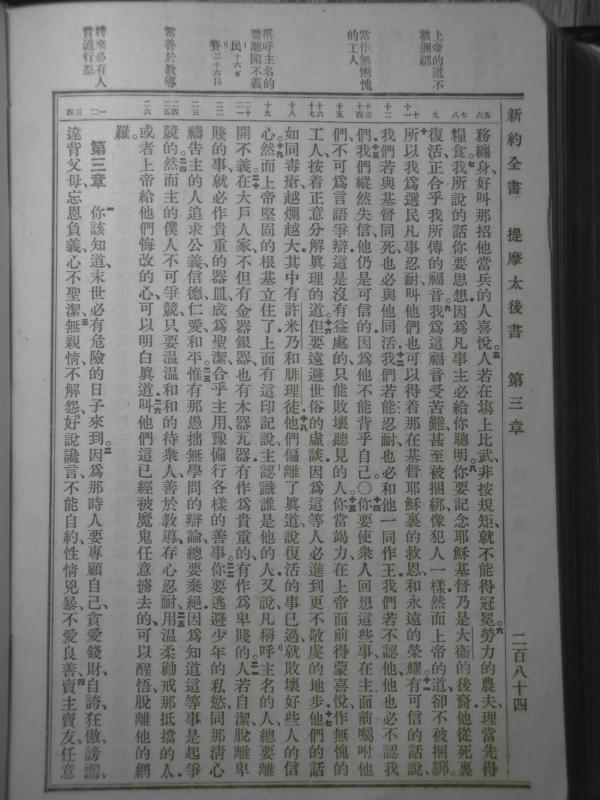 新約全書 提摩太後書 第三章 二百八十四
上帝的道不
被捆綁
當作無慚愧
的工人
稱呼主名的
要離開不義
民十六5
賽二十六13
當善於教導
將來必有人
背道行惡
務纏身、好叫那招他當兵的人喜悅人若在塲上比武非按規矩就不能得冠冕勞力的農夫理當先得
糧食我所說的話你要思想因爲凡事主必給你聰明你要記念耶穌基督乃是大衞的後裔他從死裏
復活正合乎我所傳的福音我爲這福音受苦難甚至被捆綁像犯人一樣然而上帝的道卻不被捆綁。
所以我爲選民凡事忍耐叫他們也可以得着那在基督耶穌裏的救恩和永遠的榮耀有可信的話說、
我們若與基督同死也必與他同活我們若能忍耐也必和他一同作王我們若不認他他也必不認我
們、我們縱然失信他仍是可信的因爲他不能背乎自己〇你要使衆人回想這些事在主面前囑咐他
們不可爲言語爭辯這是沒有益處的只能敗壞聽見的人你當竭力在上帝面前得蒙喜悅作無愧的
工人、按着正意分解眞理的道但要遠避世俗的虛談因爲這等人必進到更不敬虔的地步他們的話
如同毒瘡越爛越大其中有許米乃和腓理徒他們偏離了眞道說復活的事已過就敗壞好些人的信
心然而上帝堅固的根基立住了上面有這印記說主認識誰是他的人又說凡稱呼主名的人總要離
開不義在大戶人家不但有金器銀器也有木器瓦器有作爲貴重的有作爲卑賤的人若自潔脫離卑
賤的事就必作貴重的器皿成爲聖潔合乎主用豫備行各樣的善事你要逃避少年的私慾同那清心
禱告主的人追求公義信德仁愛和平惟有那愚拙無學問的辯論總要棄絕因爲知道這等事是起爭
競的然而主的僕人不可爭競只要溫溫和和的待衆人善於敎導存心忍耐用溫柔勸戒那抵擋的人
或者上帝給他們悔改的心可以明白眞道叫他們這已經被魔鬼任意擄去的可以醒悟脫離他的網
羅。
第三章 你該知道末世必有危險的日子來到因爲那時人要專顧自己貪愛錢財自誇狂傲謗讟、
違背父母忘恩負義心不聖潔無親情不解怨好說讒言不能自約性情兇暴不愛良善賣主賣友任意